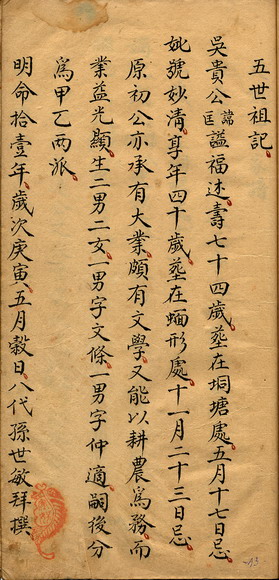 五世祖記
吳貴公諱匡謚福述壽七十四歲塟在垌塘處五月十七日忌
妣號妙清享年四十歲塟在蛔形處十一月二十三日忌
原初公亦承有大業頗有文學又能以耕農為務而
業益光顯生二男二女一男字文條一男字仲適嗣後分
為甲乙兩派
明命拾壹年歲次庚寅五月穀日八代孫世敏拜撰